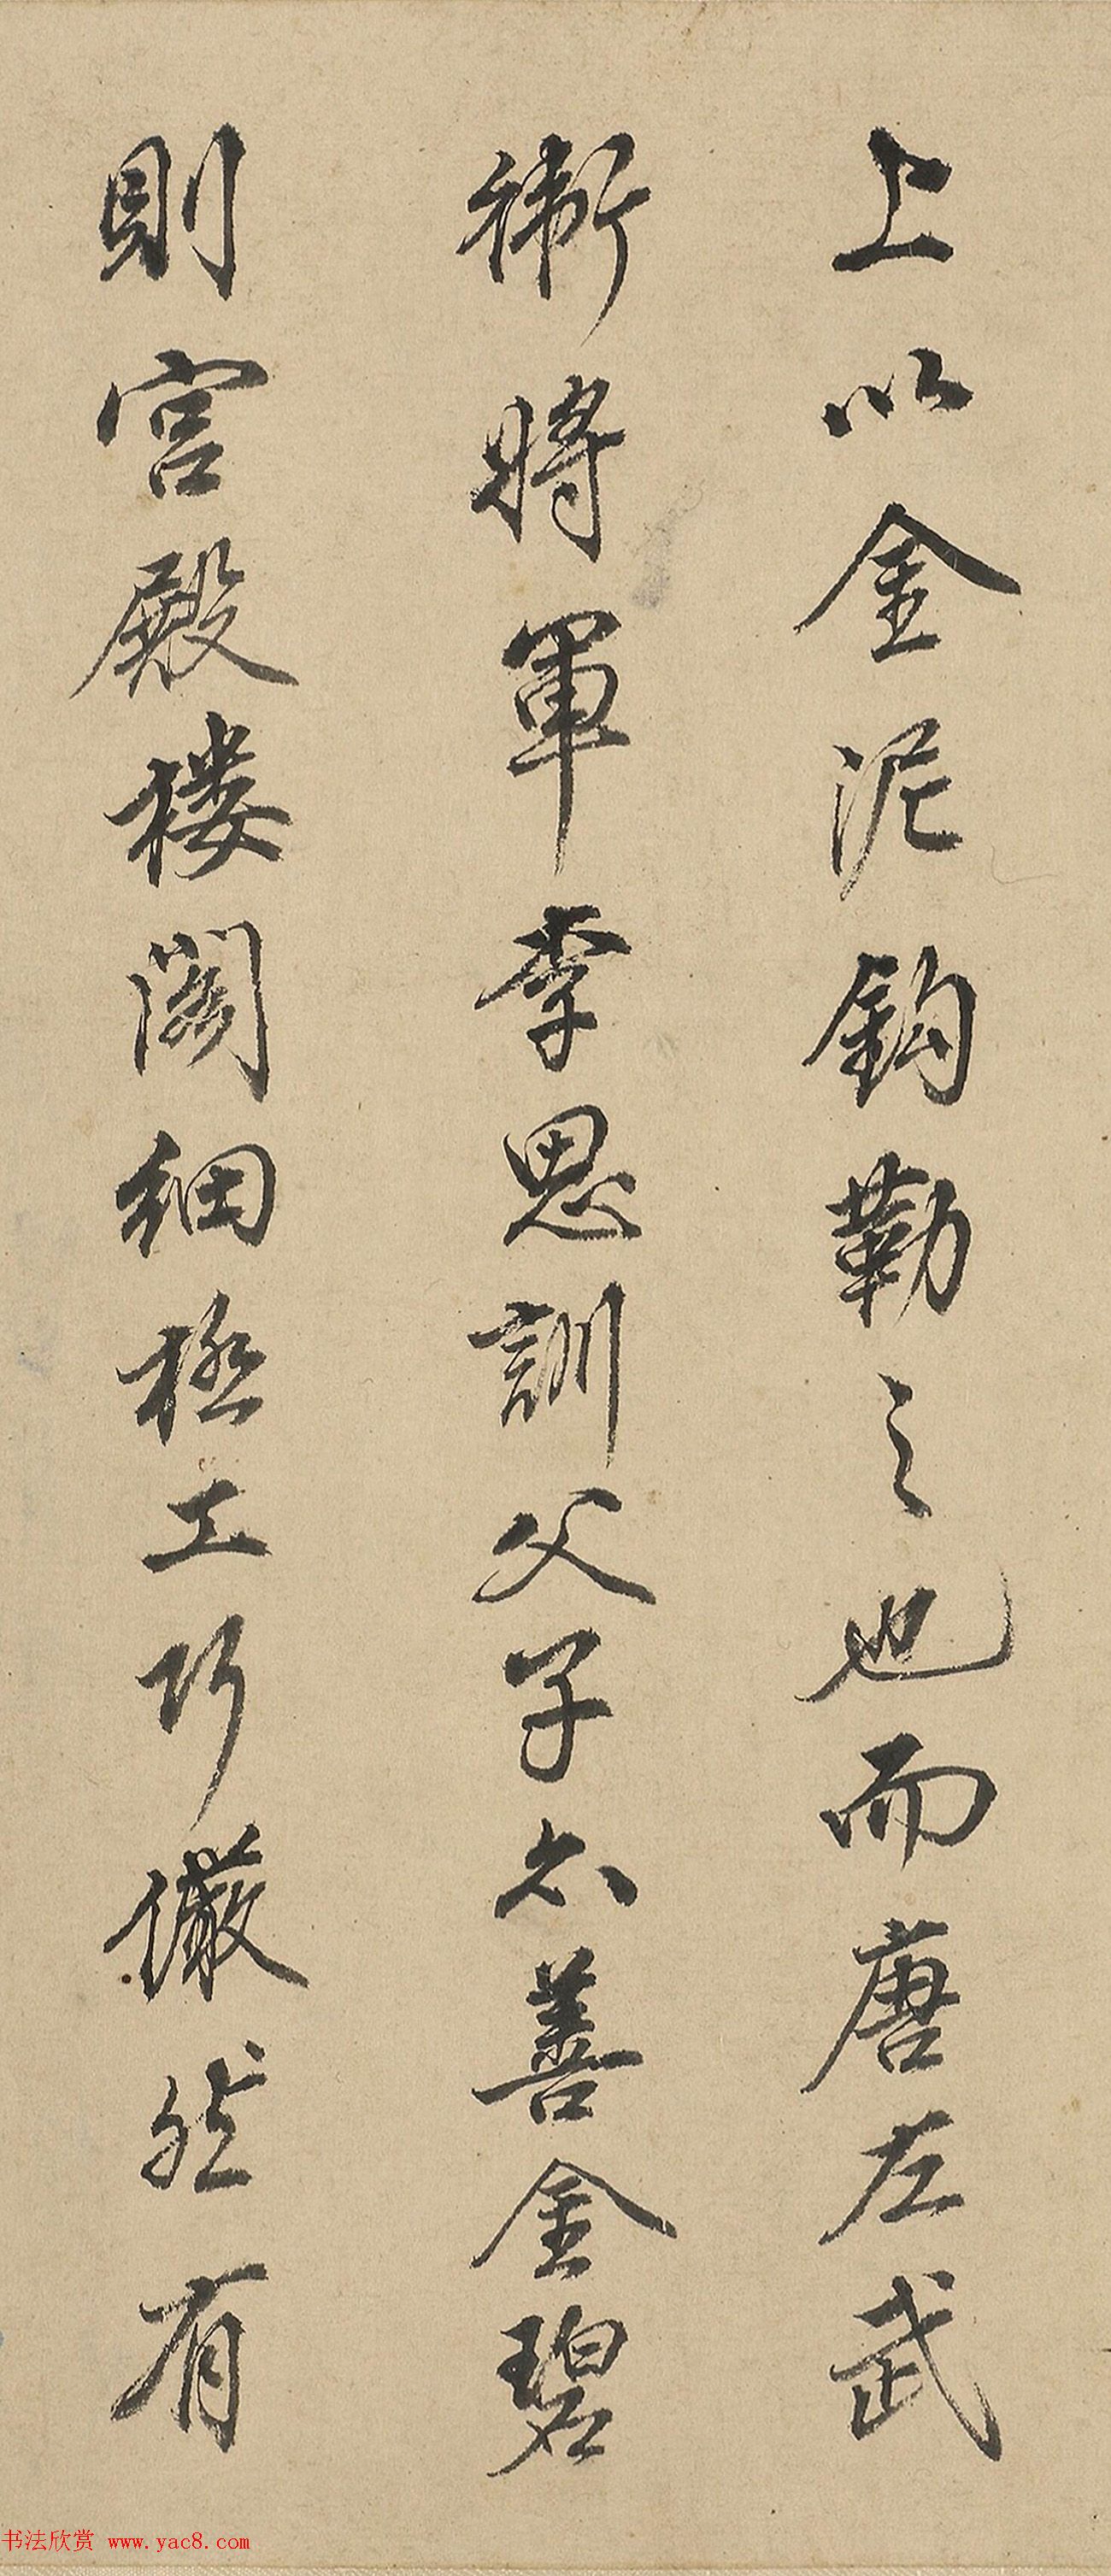 上以金泥鈎勒之也而唐左武
衛將軍李思訓父子亦善金碧
則宫殿楼閣細極工巧儼然有
书法欣赏 www.yac8.com